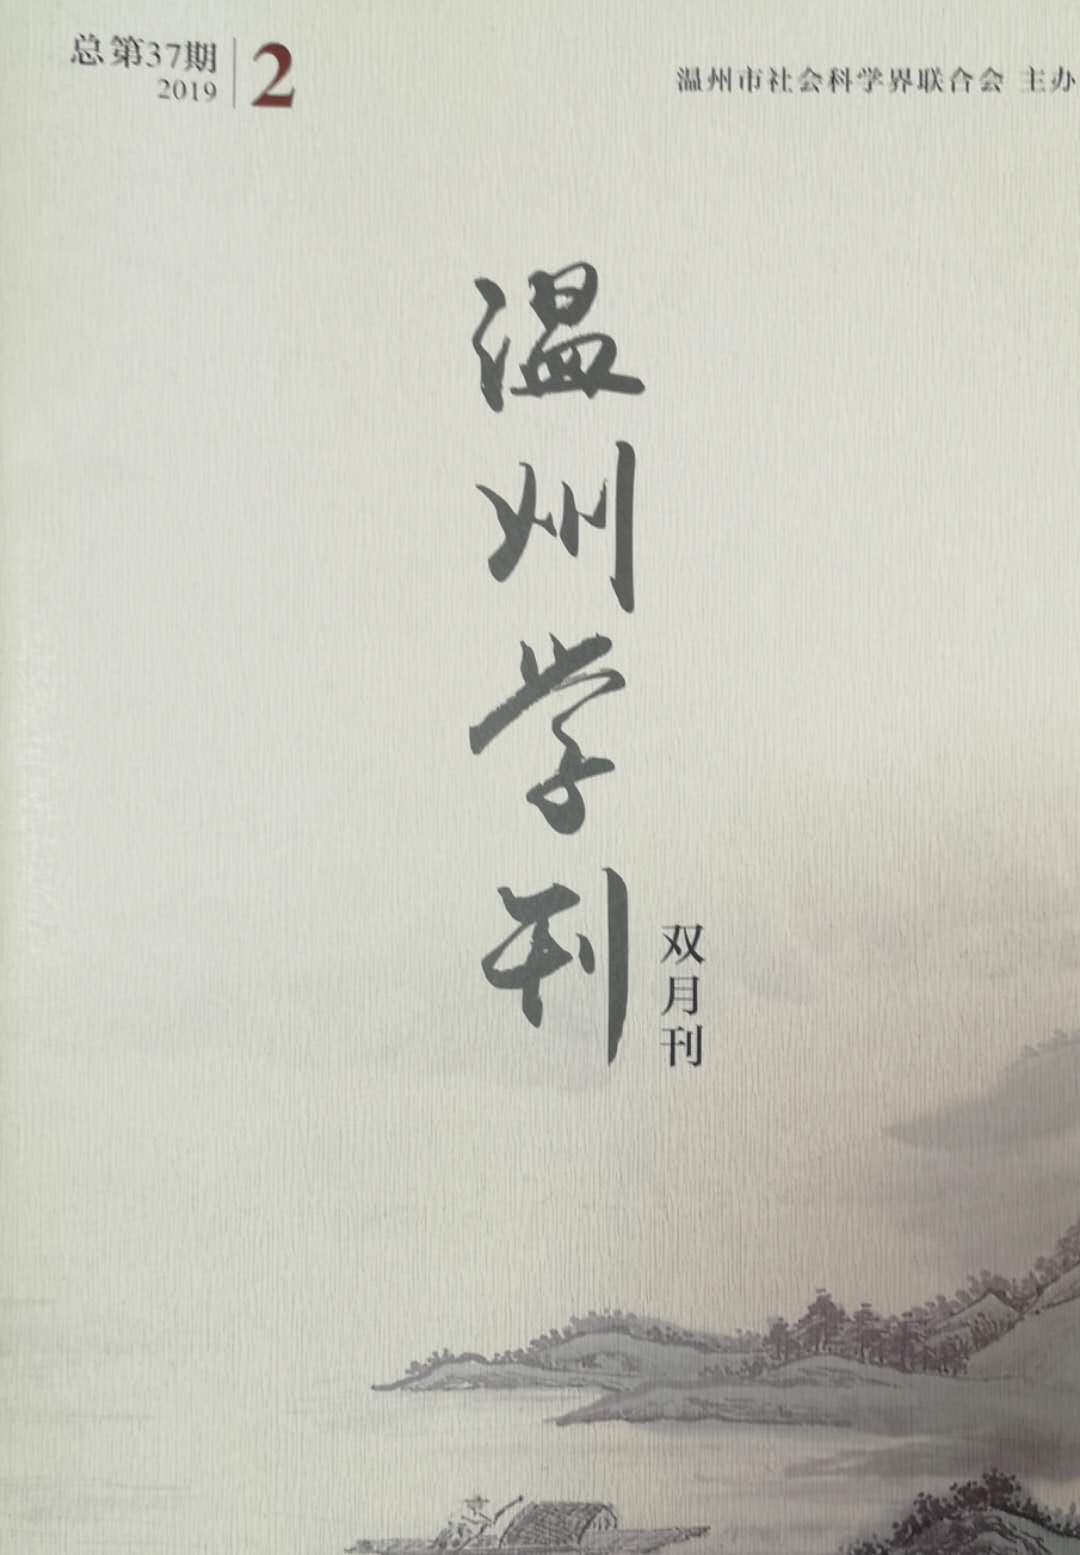 总第37期
2019
2
温州市社会科学界联合会 主办
温州学刊
双月刊